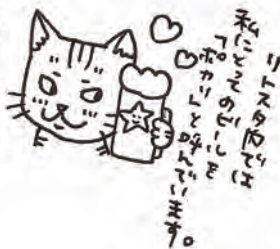 リトスタ内では
私にとってのビールを
"ポカリ"と呼んでいます。